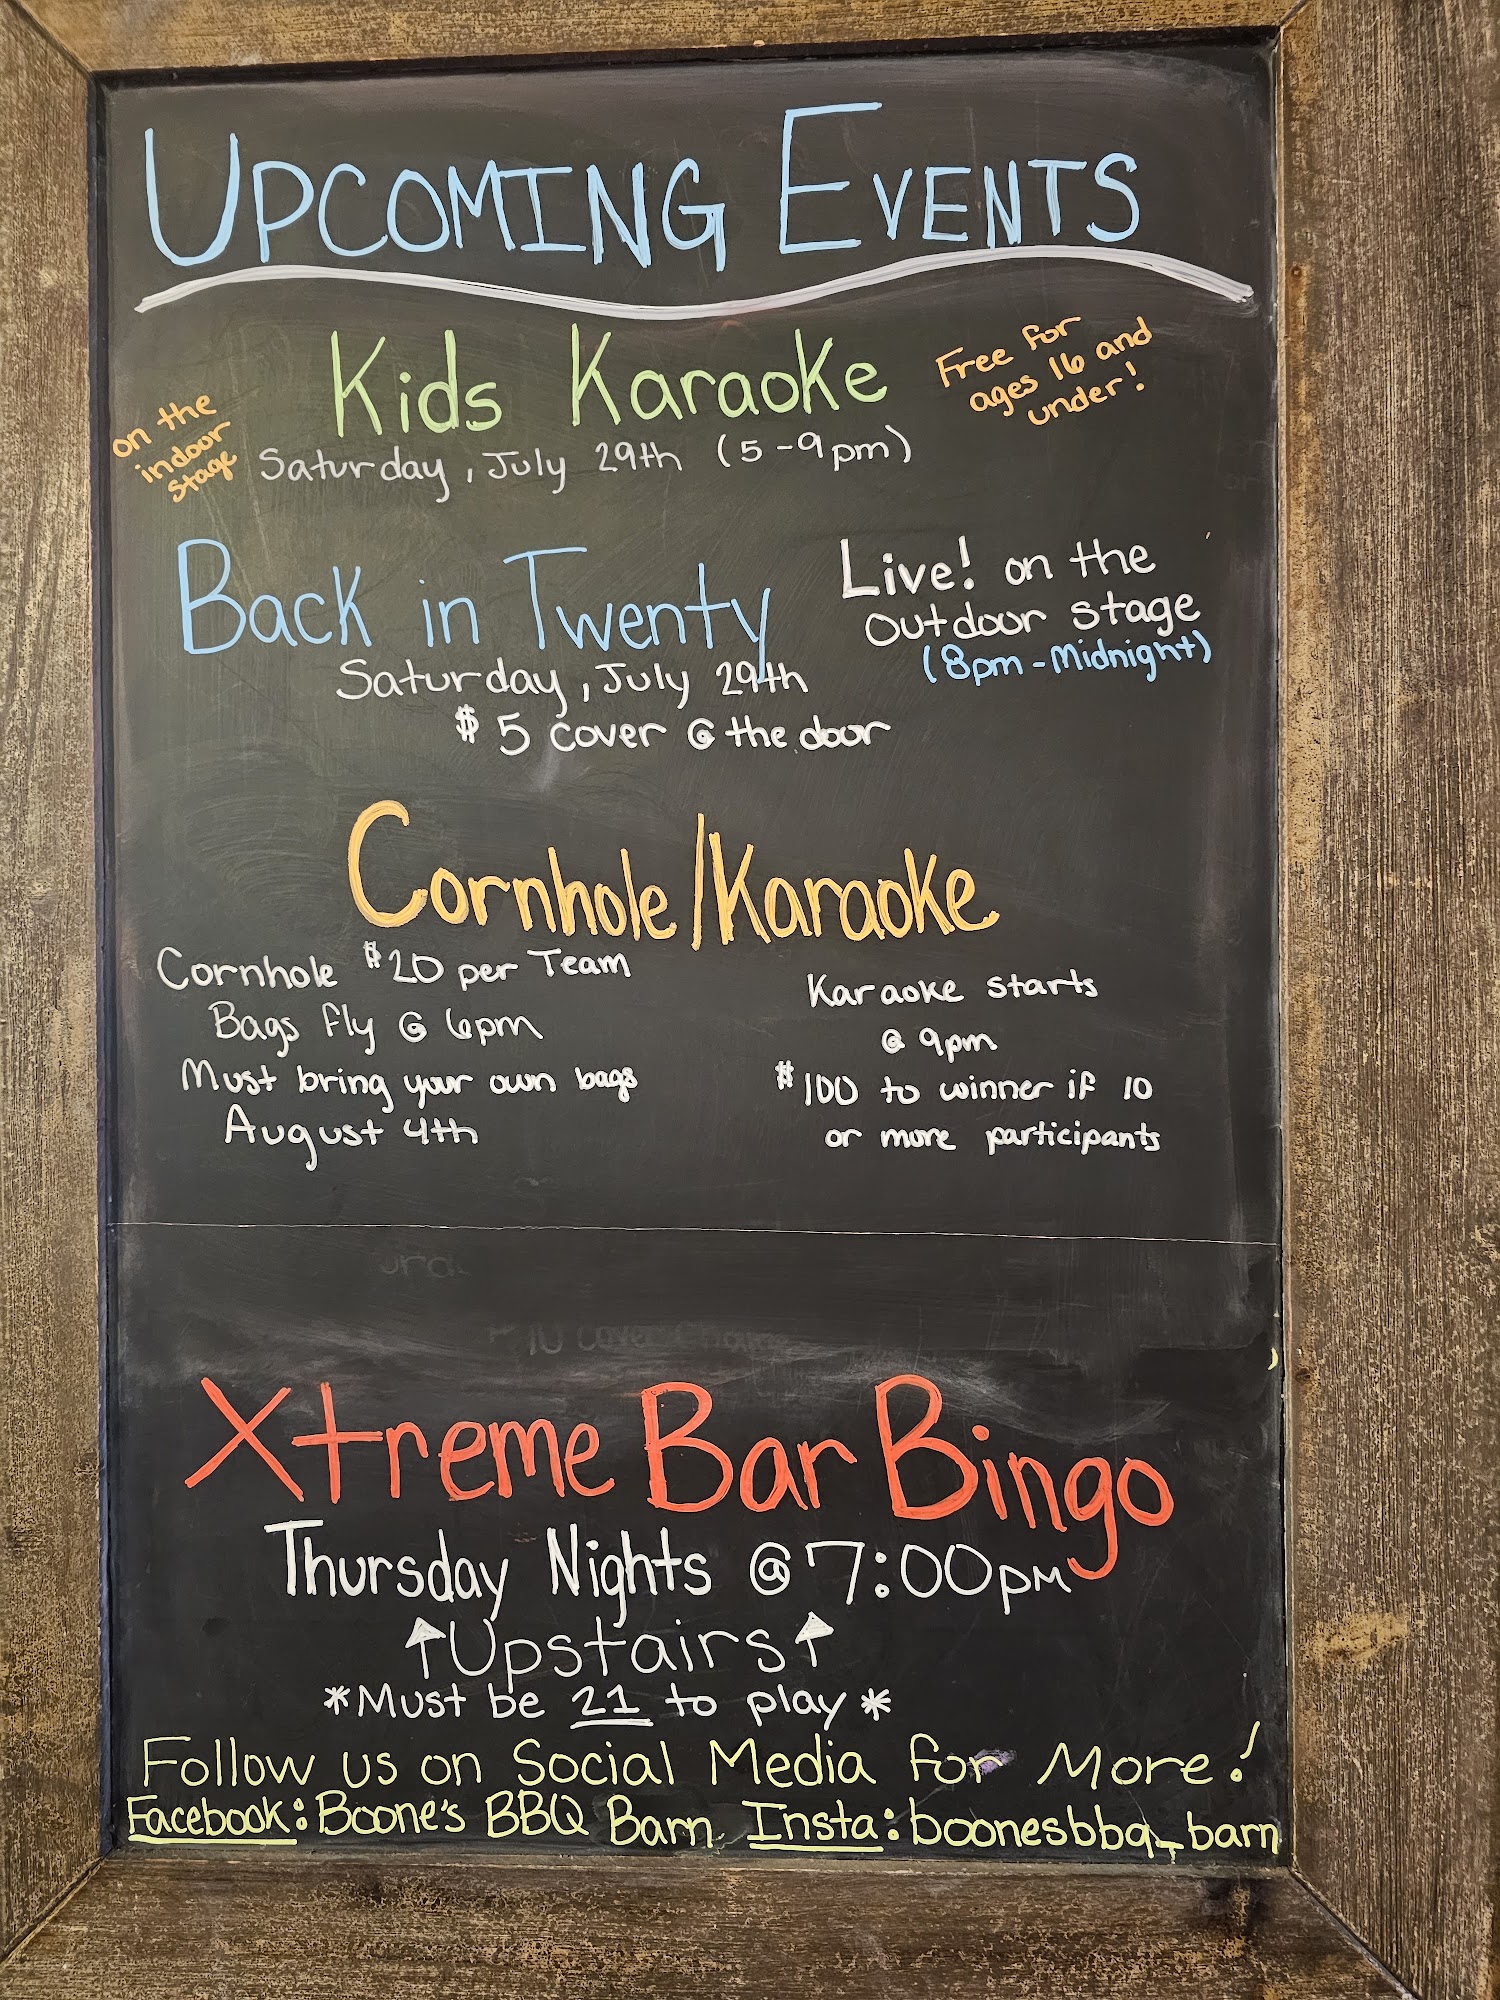 UPCOMING EVENTS
Kids Karaoke
Free for
ages 16 and
under!
on the
indoor
stage
Saturday, July 29th (5-9pm)
Back in Twenty
Live! on the
outdoor stage
(8pm-Midnight)
Saturday, July 29th
$5 cover @ the door
Cornhole/Karaoke
Cornhole $20 per Team
Bags fly @ 6pm
Must bring your own bags
August 4th
Karaoke starts
@ 9pm
$100 to winner if 10
or more participants
Xtreme Bar Bingo
Thursday Nights @ 7:00pm
↑Upstairs↑
*Must be 21 to play*
Follow us on Social Media for More!
Facebook: Boone's BBQ Barn Insta: boonesbbq_barn